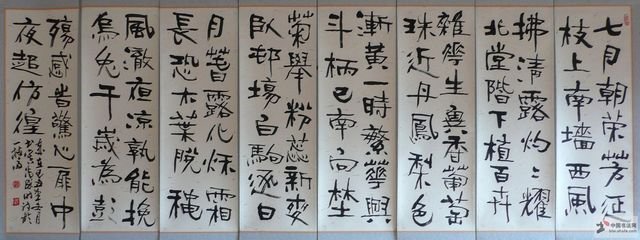 七月朝荣芳征
枝上南墙西风
拂清露灼灼耀
北堂阶下植百卉
雜花生奥香葡萄
珠近丹鳳梨色
漸黄一時繁興
斗柄已南向埜
菊舉粉蕊新变
臥邨場白駒逐日
月暮露化秌霜
長恐木葉脱穐
風澈夜凉孰能挽
烏兔千歲為彭
殤感昔驚心扉中
夜起彷徨
中国书法网